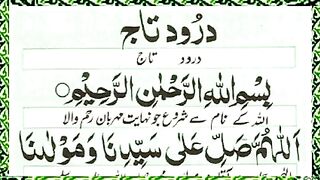 درود تاج
درود تاج
بِسْمِ اللهِ الرَّحْمٰنِ الرَّحِيْمِ
اللہ کے نام سے شروع جو نہایت مہربان رحم والا
اَللّٰهُمَّ صَلِّ عَلٰى سَيِّدِنَا وَمَوْلٰنَا